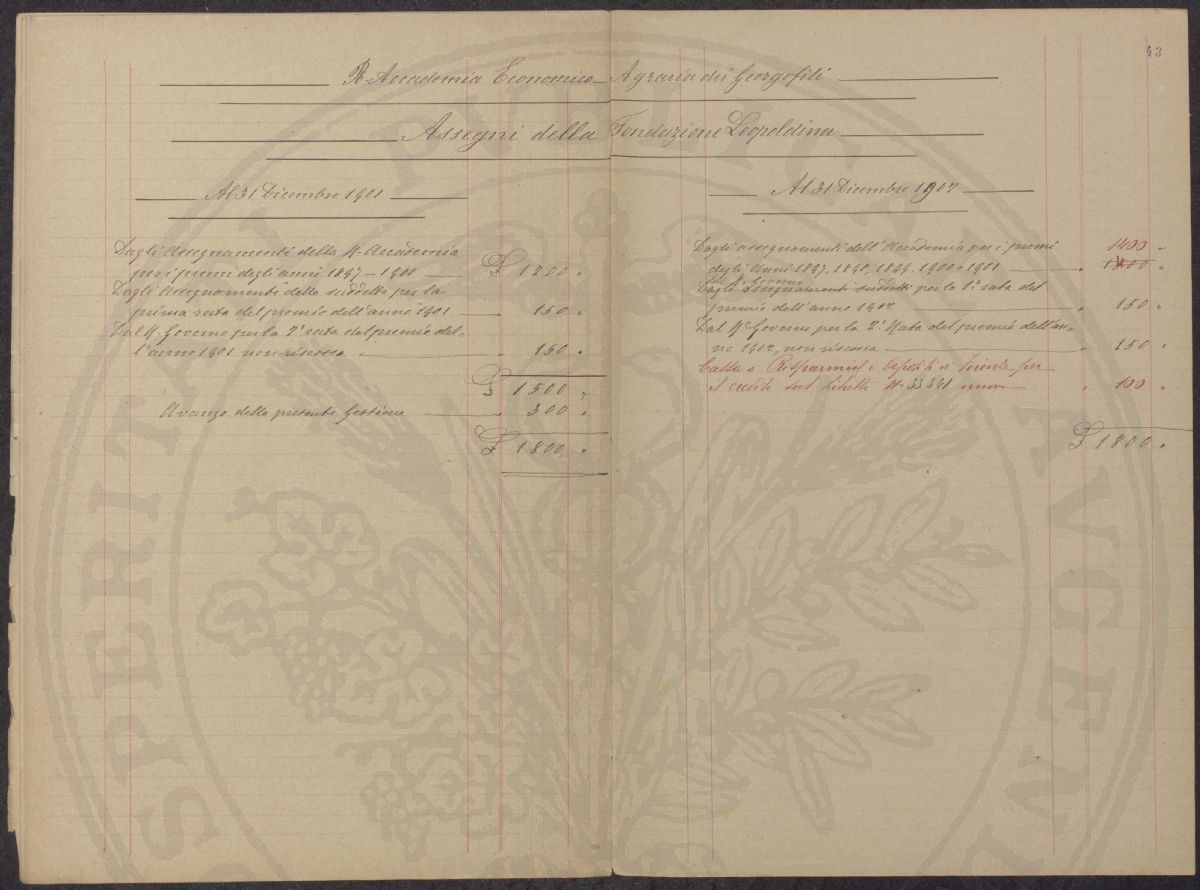 43
R. Accademia Economico-Agraria dei Georgofili
Assegni della Fondazione Leopoldina
Al 31 Dicembre 1901
Dagli Assegnamenti della R. Accademia
per i premi degli anni 1897-1900 £ 1200 "
Dagli Assegnamenti della suddetta per la
prima rata del premio dell'anno 1901 " 150 "
Dal R. Governo per la 2ª rata del premio del-
l'anno 1901 non riscossa " 150 "
£ 1500 "
Avanzo della presente Gestione " 300 "
£ 1800 "
Al 31 Dicembre 1902
Dagli assegnamenti dell'Accademia per i premi 1400 "
degli Anni 1897. 1898. 1899. 1900 e 1901 "
Dal R. Governo
Dagli Assegnamenti suddetti per la 1ª rata del
premio dell'anno 1902 " 150 "
Dal R. Governo per la 2ª Rata del premio dell'an-
no 1902, non riscossa " 150 "
Cassa di Risparmi e Depositi di Firenze per
il credito sul Libretto N. 33541 nuovo " 100 "
£ 1800 "
SPERITATI PVBLICAE AVGEND